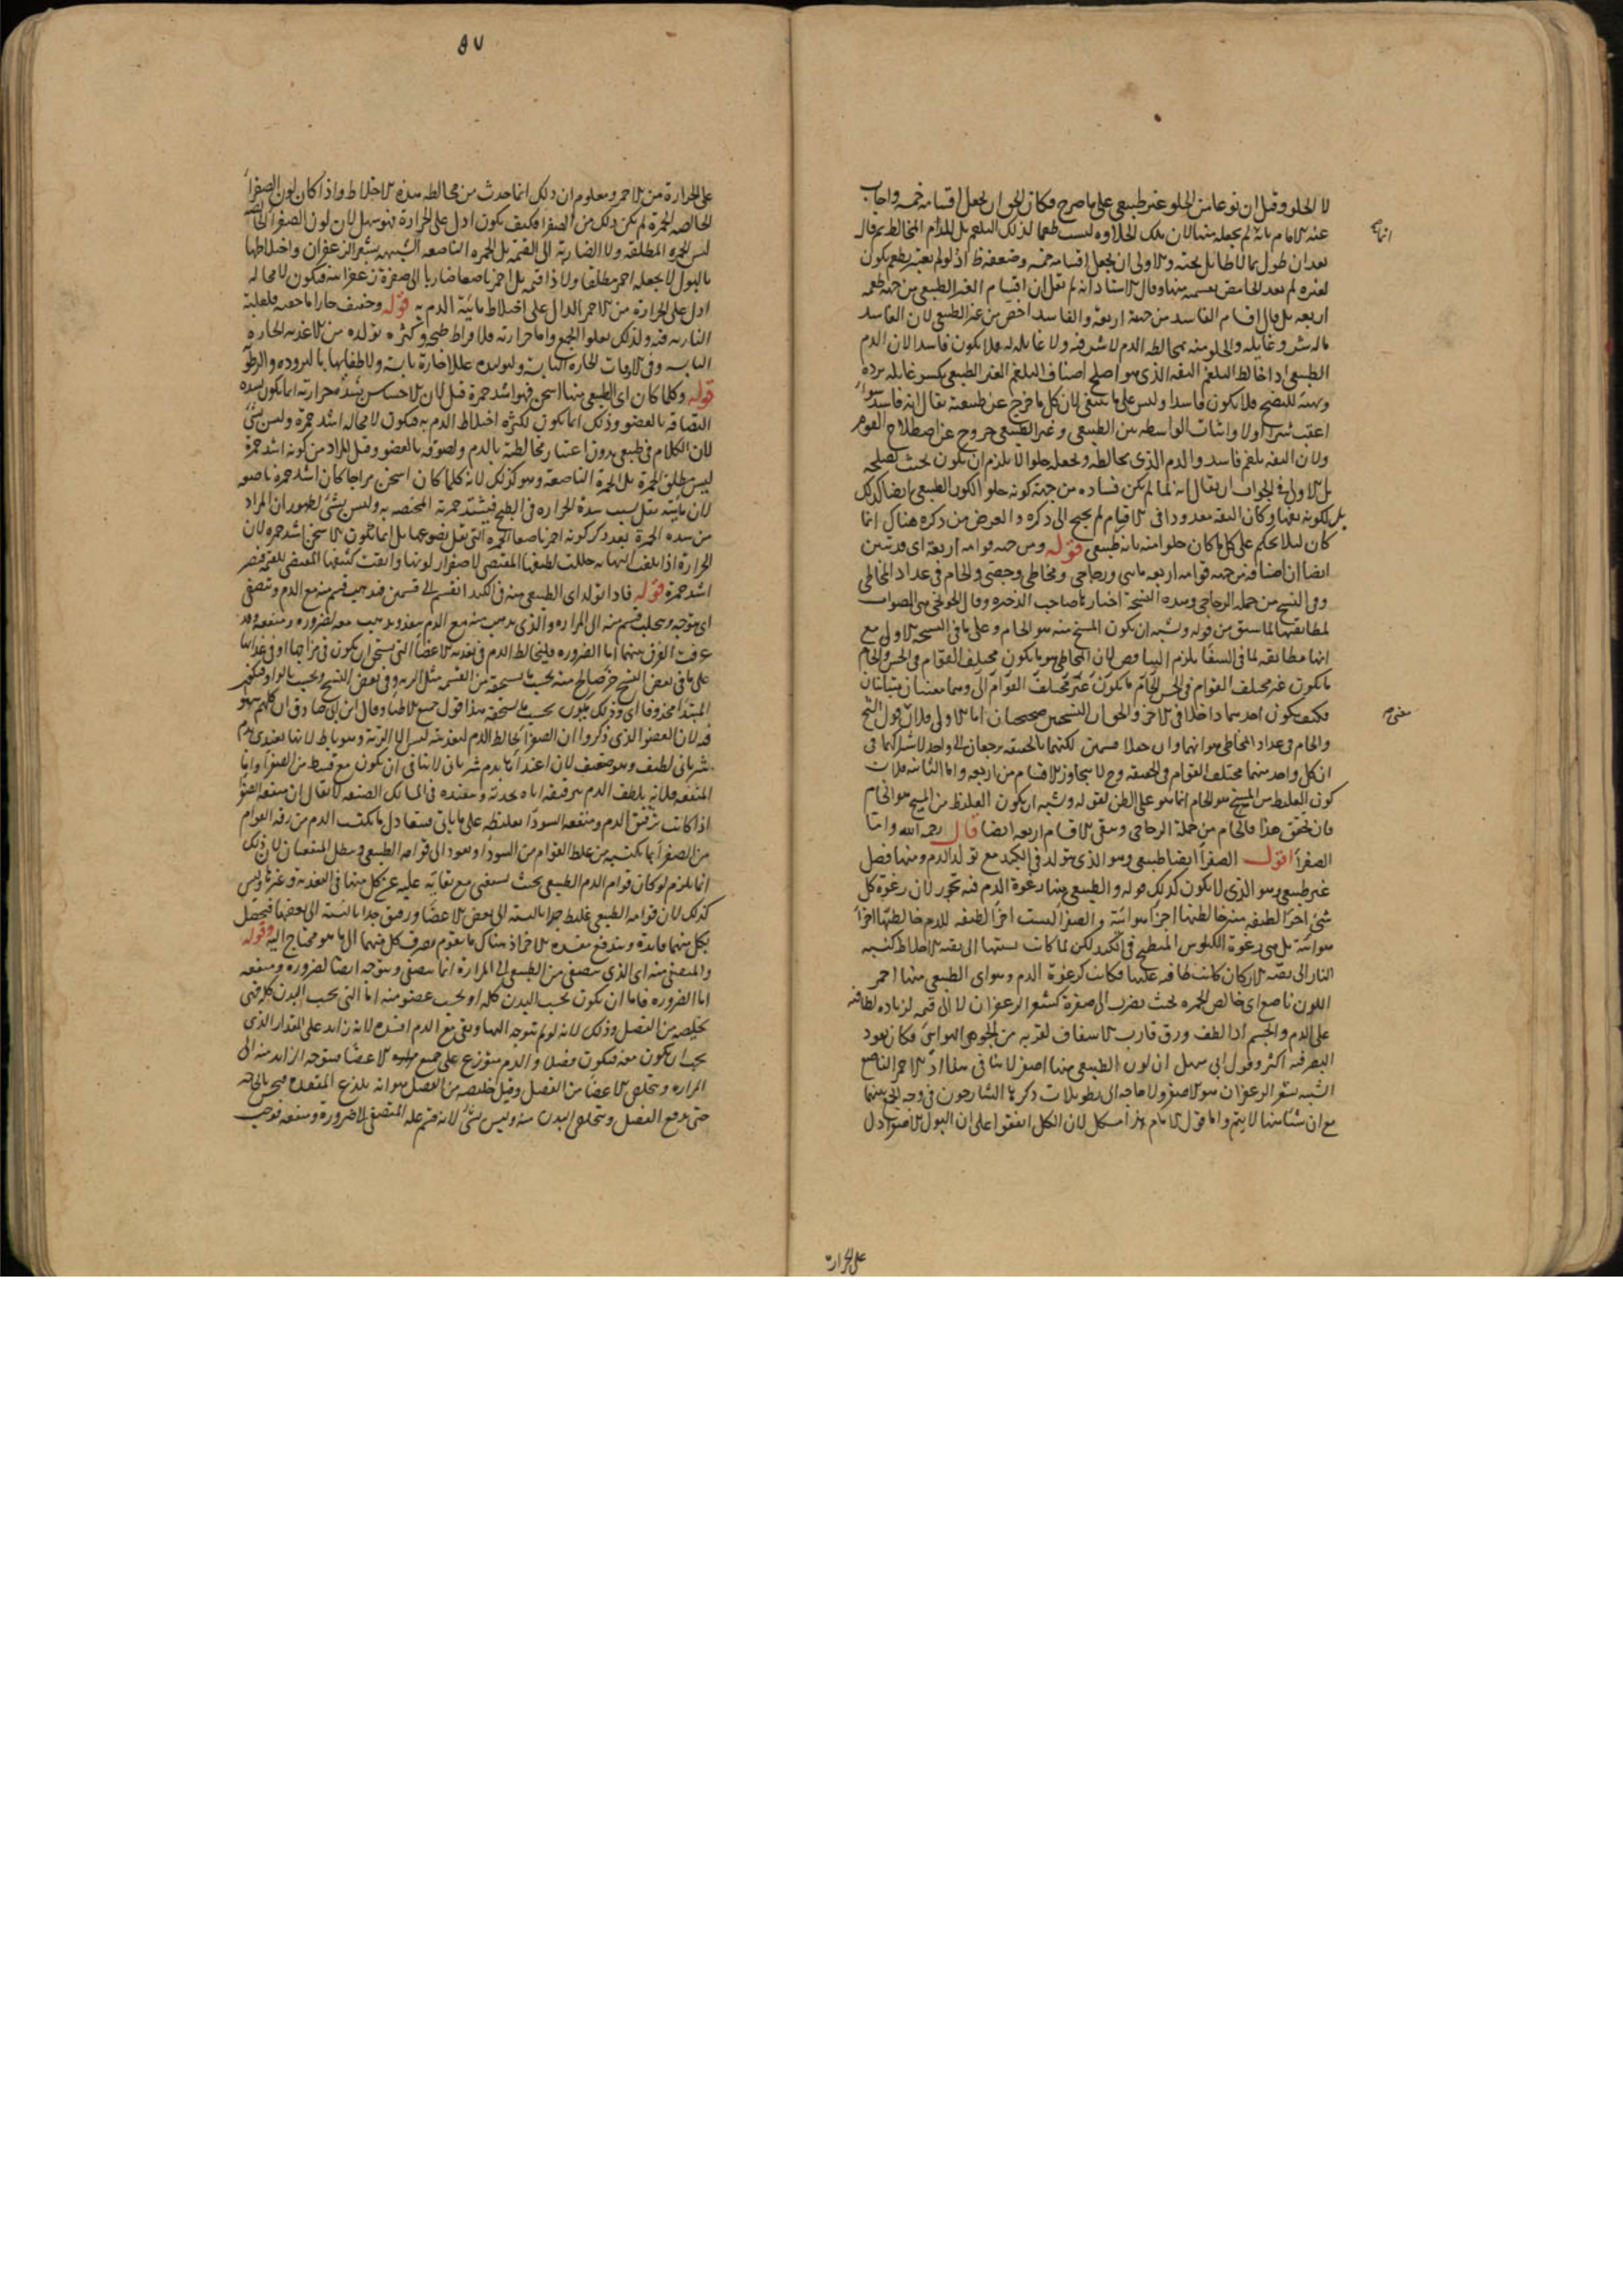 لا الحلو وقيل ان نوعا من الحلو غير طبيعي على ما صرح فكان الحق ان يجعل اقسامه خمسه واجاب
عنه الامام بانه لم يجعله منها لان تلك الحلاوه ليست طعما لذلك البلغم بل للدم المخالط ثم قال
بعد ان طول بما لا طائل تحته والاولى ان يجعل اقسامه خمسه وضعفه ظ اذ لو لم يعتبر طعم يكون
لغيره لم يعد الحامض بقسميه منها وقال الاستاد انه لم يقل ان اقسام الغير الطبيعي من جهة طعمه
اربعه بل قال اقسام الفاسد من جهة اربعة والفاسد اخص من غير الطبيعي لان الفاسد
ما له شر وغايله والحلو منه بمخالطه الدم لا شر فيه ولا غايله له فلا يكون فاسدا لان الدم
الطبيعي اذا خالط البلغم التفه الذي هو اصلح اصناف البلغم الغير الطبيعي يكسر غايله برده
ويهيئه للنضج فلا يكون فاسدا وليس على ما ينبغي لان كل ما خرج عن طبيعته يقال انه فاسد سواء
اعقب شرا او لا واثبات الواسطه بين الطبيعي وغير الطبيعي خروج عن اصطلاح القوم
ولان التفه بلغم فاسد والدم الذي يخالطه ويجعله حلوا لا يلزم ان يكون بحيث يصلحه
بل الاولى في الجواب ان يقال انه لما لم يكن فساده من جهة كونه حلوا لكون الطبيعي ايضا كذلك
بل لكونه تفها وكان التفه معدودا في الاقسام لم يحتج الى ذكره والغرض من ذكره هناك انما
كان ليلا يحكم على كل ما كان حلوا منه بانه طبيعي قوله ومن جهه قوامه اربعة اى قد تبين
ايضا ان اصنافه من جهه قوامه اربعه مايى وزجاجى ومخاطى وجصى والخام فى عداد المخاطى
وفى النسخ من جمله الزجاجى وهذه النسخة اختارها صاحب الذخيره وقال الخونجى هى الصواب
لمطابقتها لما سبق من قوله ويشبه ان يكون المسيخ منه هو الخام وعلى ما فى النسخه الاولى مع
انها مطابقه لما فى الشفا يلزم التناقص لان المخاطى هو ما يكون مختلف القوام فى الحس والخام
ما يكون غير مختلف القوام فى الحس الخام ما يكون غير مختلف القوام الى وهما معنيان متباينان
فكيف يكون احدهما داخلا فى الاخر والحق ان النسختين صحيحتان اما الاولى فلان قول الشيخ
والخام فى عداد المخاطى هو انهما وان جعلا قسمين لكنهما بالحقيقه يرجعان الى واحد لاشتراكهما فى
ان كل واحد منهما مختلف القوام فى الحقيقه وح لا يتجاوز الاقسام من اربعه واما الثانيه فلان
كون الغليظ من المسيخ هو الخام انما هو على الظن لقوله ويشبه ان يكون الغليظ من المسيخ هو الخام
فان تحقق هذا فالخام من جملة الزجاجى وبقى الاقسام اربعه ايضا قال رحمه الله واما
الصفرا اقول الصفرا ايضا طبيعى وهو الذى يتولد فى الكبد مع تولد الدم ومنها فضل
غير طبيعى وهو الذى لا يكون كذلك قوله والطبيعى منها رغوة الدم فيه تجوز لان رغوة كل
شئ اجزا لطيفه منه خالطتها اجزا هوائية والصفرا ليست اجزا لطيفه للدم خالطتها اجزا
هوائية بل هى رغوة الكيلوس المنطبخ فى الكبد لكن لما كانت نسبتها الى بقيه الاخلاط كنسبه
النار الى بقيه الاركان كانت طافيه عليها فكانت كرغوة الدم وهو اى الطبيعى منها احمر
اللون ناصع اى خالص الحمره بحيث يضرب الى صفرة كشعر الزعفران لا الى قتمه لزياده لطافته
على الدم والجسم اذا لطف ورق قارب الاشفاف لقربه من الجوهر الهوائى فكان نفوذ
البصر فيه اكثر وقول ابى سهل ان لون الطبيعى منها اصفر لا ينافى هذا اذ الاحمر الناصع
الشبيه بشعر الزعفران هو الاصفر ولا حاجه الى تطويلات ذكرها الشارحون فى وجه الجمع بينهما
مع ان شيئا منها لا يتم واما قول الامام هذا مشكل لان الكل اتفقوا على ان البول الاصفر ادل
على الحرارة
٥٧
على الحرارة من الاحمر ومعلوم ان ذلك انما حدث من مخالطه هذه الاخلاط واذا كان لون الصفرا
الخالصه الحمرة لم يكن ذلك من الصفرا فكيف يكون ادل على الحرارة فهو سهل لان لون الصفرا الخالصه
ليس الحمره المطلقه ولا الضاربة الى القتمه بل الحمره الناصعه الشبيهه بشعر الزعفران واختلاطها
بالبول لا يجعله احمر مطلقا ولا ذا قتمه بل احمر ناصعا ضاربا الى صفرة زعفرانيه فيكون لا محاله
ادل على الحرارة من الاحمر الدال على اختلاط مائية الدم به قوله وخفيف حار اما خفته فلغلبة
الناريه فيه ولذلك يعلو الجميع واما حرارته فلافراط طبخه وكثره تولده من الاغذيه الحاره
اليابسه وفى الاوقات الحاره اليابسه ولتوليده عللا حارة يابسة ولانطفايها بالبروده والرطوبه
قوله وكلما كان اى الطبيعى منها اسخن فهو اشد حمرة قيل لان الاحساس بشدة حرارته انما يكون لشده
التصاقه بالعضو وذلك انما يكون لكثره اختلاط الدم به فيكون لا محاله اشد حمرة وليس بشئ
لان الكلام فى طبيعى بدون اعتبار مخالطته بالدم ولصوقه بالعضو وقيل المراد من كونه اشد حمرة
ليس مطلق الحمرة بل الحمرة الناصعه وهو كذلك لانه كلما كان اسخن مزاجا كان اشد حمره ناصعه
لان مائيته تقل بسبب شدة الحراره فى الطبخ فيشتد حمرته المختصه به وليس بشئ لظهور ان المراد
من شده الحمرة بعد ذكر كونه احمر ناصعا الحمره التى تقل نصوعها بل انما تكون الاسخن اشد حمره لان
الحرارة اذا بلغت النهايه حللت لطيفها المقتضى لاصفرار لونها وابقت كثيفها المقتضى للحمره فتصير
اشد حمرة قوله فاذا تولد اى الطبيعى منه فى الكبد انقسم الى قسمين فيذهب قسم منه مع الدم ويتصفى
اى يتوجه ويتحلب قسم منه الى المراره والذى يذهب منه مع الدم ينفذ ويذهب معه لضروره ومنفعة وقد
عرفت الفرق بينهما اما الضروره فليخالط الدم فى تغذيه الاعضا التى يستحق ان يكون فى مزاجها او فى غذائها
على ما فى بعض النسخ جزء صالح منه بحسب ما يستحقه من القسمه مثل الريه وفى بعض النسخ وبحسب بالواو فيكون
المبتدا محذوفا اى وذلك يكون بحسب ما يستحقه هذا قول جميع الاطبا وقال ابن ابى صادق ان كلهم سهو
فيه لان العضو الذى ذكروا ان الصفرا تخالط الدم لتغذيته ليس الا الرئة وهو باطل لانها تغتذى بدم
شريانى لطيف وهو ضعيف لان اغتذائها بدم شريانى لا ينافى ان يكون مع قسط من الصفرا واما
المنفعه فلانه يلطف الدم بترقيقه اياه بحدته وينفذه فى المسالك الضيقه لا يقال ان منفعه الصفرا
اذا كانت ترقيق الدم ومنفعه السودا تغليظه على ما ياتى فيتعادل ما يكتسب الدم من رقه القوام
من الصفرا بما يكتسبه من غلظ القوام من السودا ويعود الى قوامه الطبيعى ويبطل المنفعتان لان ذلك
انما يلزم لو كان قوام الدم الطبيعى بحيث يستغنى مع بقائه عليه عن كل منهما فى التغذيه وغيرها وليس
كذلك لان قوامه الطبيعى غليظ جدا بالنسبه الى بعض الاعضا ورقيق جدا بالنسبه الى بعضها فيحصل
بكل منهما فايدة ويندفع مفسده الاخر اذ هناك ما يقوم بصرف كل منهما الى ما هو محتاج اليه وقوله
والمتصفى منه اى الذى يتصفى من الطبيعى الى المرارة انما يتصفى ويتوجه ايضا لضروره ومنفعه
اما الضروره فاما ان يكون بحسب البدن كله او بحسب عضو منه اما التى بحسب البدن كله فهى
تخليصه من الفضل وذلك لانه لو لم يتوجه اليها وبقى مع الدم افسده لانه زايد على المقدار الذى
يجب ان يكون معه فيكون فضلا والدم يتوزع على جميع الاعضا فيتوجه الزايد منه الى
المراره ويتخلص الاعضا من الفضل وقيل تخليصه من الفضل هو انه يلذع المقعده فيحس بالحاجه
حتى يدفع الفضل ويتخلص البدن منه وليس بشئ لانه قسم عله المتصفى لضرورة ومنفعه فوجب